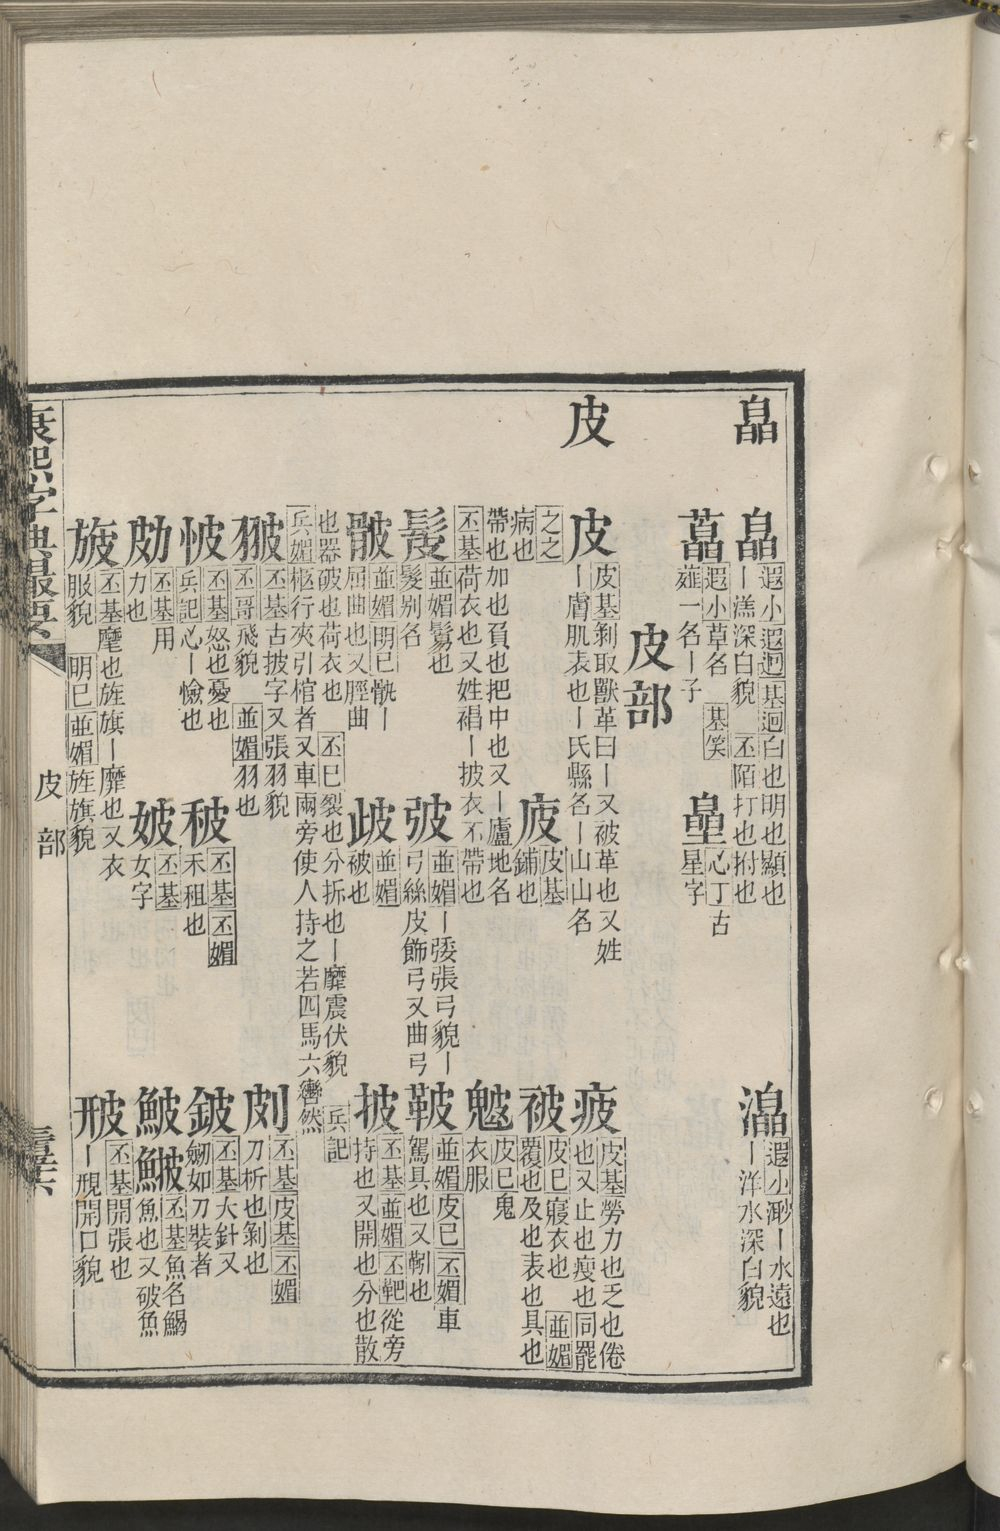 皛
皛遐小遐迥基迥白也明也顯也
丨㵿深白貌丕陌打也拊也
灝遐小渺丨水遠也
丨洋水深白貌
藠遐小草名基笑
薤一名丨子
心丁古
星字
皮部
皮
皮皮基剝取獸革曰丨又被革也又姓
丨膚肌表也丨氏縣名丨山山名
疲皮基勞力也乏也倦
也又止也瘦也同罷
之之
病也
皮基
鋪也
被皮巳寢衣也並媚
覆也及也表也具也
帶也加也負也把中也又丨廬地名
丕基荷衣也又姓裮丨披衣不帶也
皮巳鬼
衣服
髲並媚鬄也
髮別名
並媚丨弮張弓貌丨
弓絲皮飾弓又曲弓
鞁並媚皮巳丕媚車
駕具也又靷也
骳並媚明巳骫丨
屈曲也又脛曲
並媚
破也
披丕基並媚丕靶從旁
持也又開也分也散
也器破也荷衣也丕巳裂也分拆也丨靡震伏貌兵記
兵媚柩行夾引棺者又車兩旁使人持之若四馬六轡然
翍丕基古披字又張羽貌
丕哥飛貌並媚羽也
丕基丕媚
禾租也
刀析也剝也
丕基皮基丕媚
怶丕基怒也憂也
兵記心丨憸也
鈹丕基大針又
劒如刀裝者
丕基用
力也
丕基
女字
鮍丕基魚名鰑
魚也又破魚
旇丕基麾也旌旗丨靡也又衣
服貌明巳並媚旌旗貌
丕基開張也
丨覑開口貌
康熙字典撮要
皮部